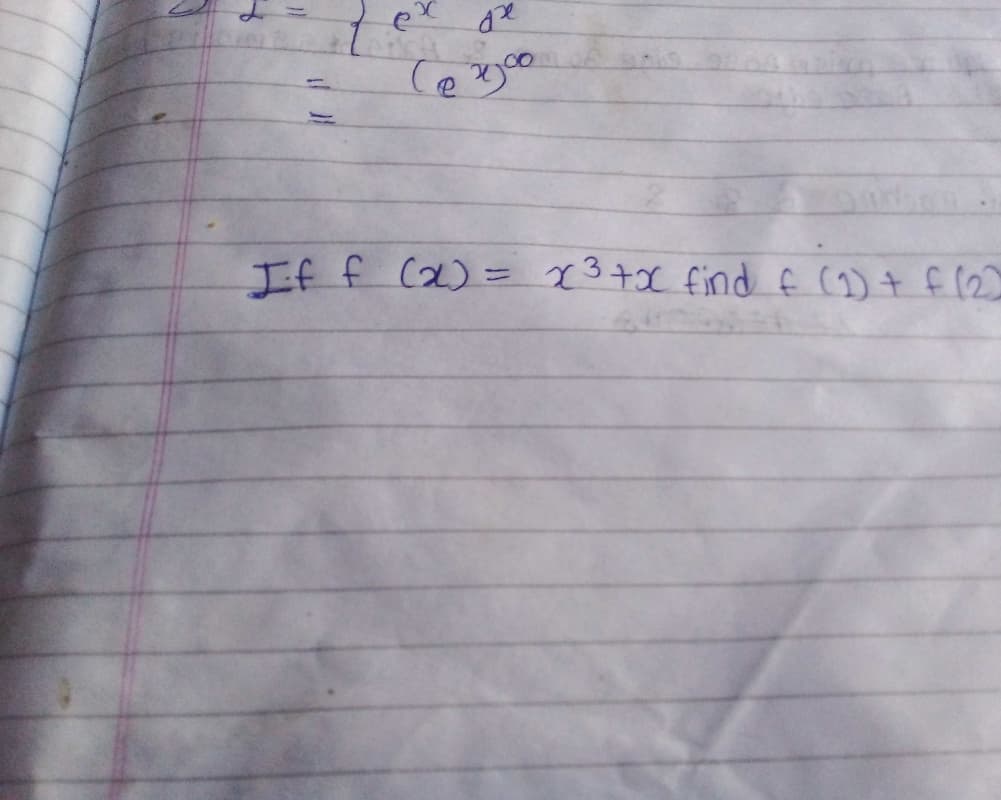 I = ∫ e^x dx
= (e^x)^∞
=
If f (x) = x³+x find f (1) + f (2)